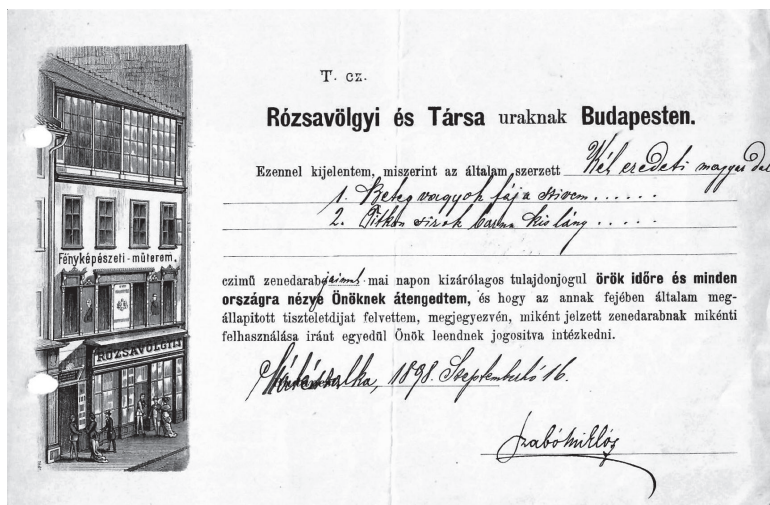 T. cz.
Rózsavölgyi és Társa uraknak Budapesten.
Ezennel kijelentem, miszerint az általam szerzett Két eredeti magyar dal
1. Beteg vagyok fáj a szivem.....
2. Titkon sirok barna kis lány.....
czimű zenedarabjaimat mai napon kizárólagos tulajdonjogul örök időre és minden
országra nézve Önöknek átengedtem, és hogy az annak fejében általam meg-
állapitott tiszteletdijat felvettem, megjegyezvén, miként jelzett zenedarabnak mikénti
felhasználása iránt egyedül Önök leendnek jogositva intézkedni.
Mátészalka, 1898. Szeptember hó 16.
Szabó Miklós
Fényképészeti-műterem.
RÓZSAVÖLGYI